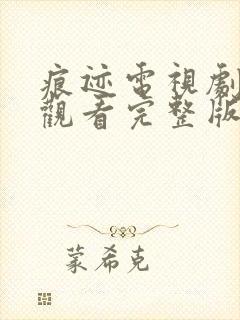 痕迹電視劇
觀看完整版
蒙希克